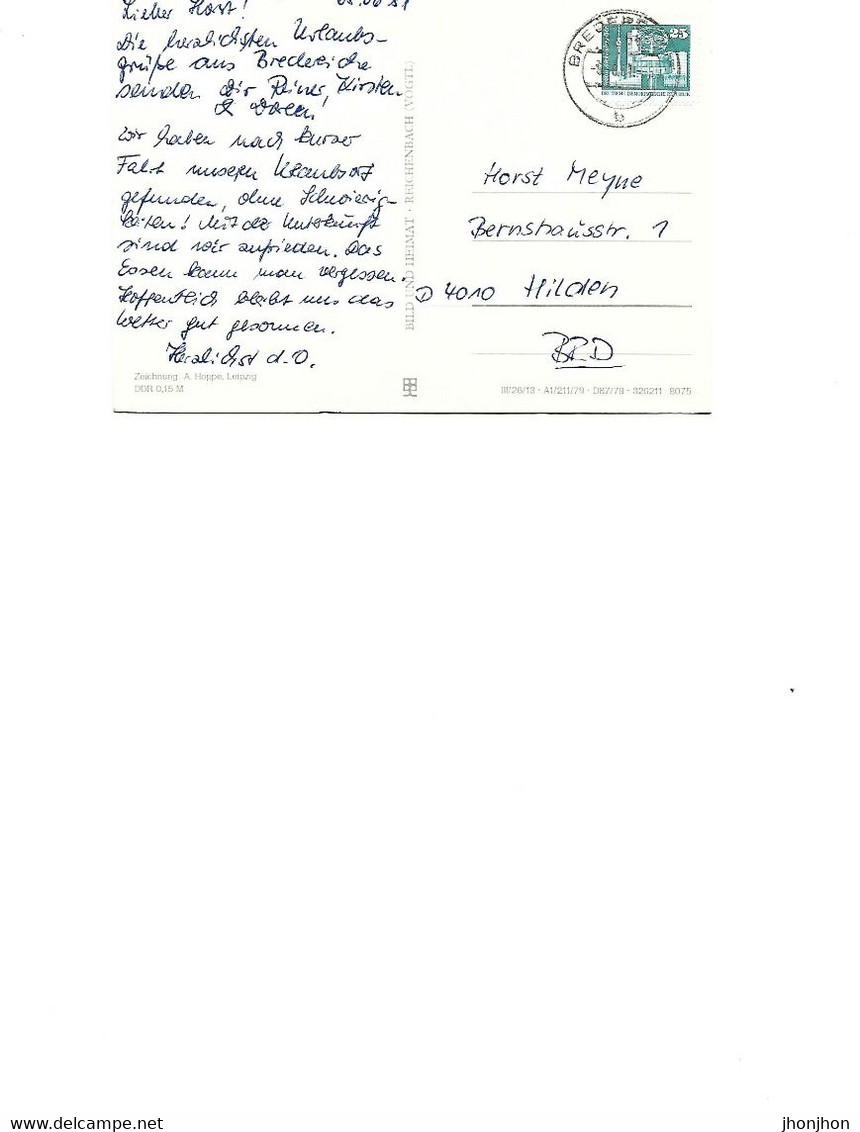 Lieber Horst!
Die herzlichsten Urlaubs-
grüße aus Bredereiche
senden Dir Reiner, Kirsten
& Doreen!
Wir haben nach kurzer
Fahrt unseren Urlaubsort
gefunden, ohne Schwierig-
keiten! Mit der Unterkunft
sind wir zufrieden. Das
Essen kann man vergessen.
Hoffentlich bleibt uns das
Wetter gut gesonnen.
Herzlichst d. O.
Zeichnung: A. Hoppe, Leipzig
DDR 0,15 M
BILD UND HEIMAT · REICHENBACH (VOGTL)
25
Horst Meyne
Bernshausstr. 1
D 4010 Hilden
BRD
III/26/13 · A1/211/79 · D87/79 · 326211 8075
delcampe.net
jhonjhon